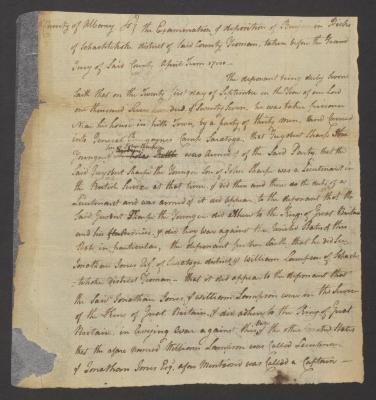 County of Albany Ss; the Examination & deposition of Benjamin
of Schachtikoke district of Said County Yeoman, taken before the Grand
Jury of Said County, April Term 1780
The deponant being duly Sworn
Saith that on the Twenty first day of September in the Year of our Lord
one thousand Seven hundred & Seventy Seven, he was taken prisoner
Near his house in Town, by a party of thirty men, and carried
into General Burgoynes Camp Saratoga, that Guysbert Sharp the
Younger was Armed & of the Said Party, that the
Said Guysbert Sharp the Younger Son of John Sharp was a Lieutenant in
the British Service at that time, & did then and there do the duty of a
Lieutenant and was armed & it did appear to the deponant that the
Said Guisbert Sharp the Younger did adhere to the King of Great Britain
and his Authorities, & did levy war against the United States & this
State in particular, the deponant further Saith that he did See
Jonathan Jones Esqr. of district & William Lampson of Schach-
-tikoke district Yeoman - that it did appear to the deponant that
the Said Jonathan Jones, & William Lampson were in the Service
of the King of Great Britain, & did adhere to the King of Great
Britain, in levying war against this & the other United States
that the afore named William Lampson was Called Lieutenan
& Jonathan Jones Esqr. afore Mentioned was Called a Captain -